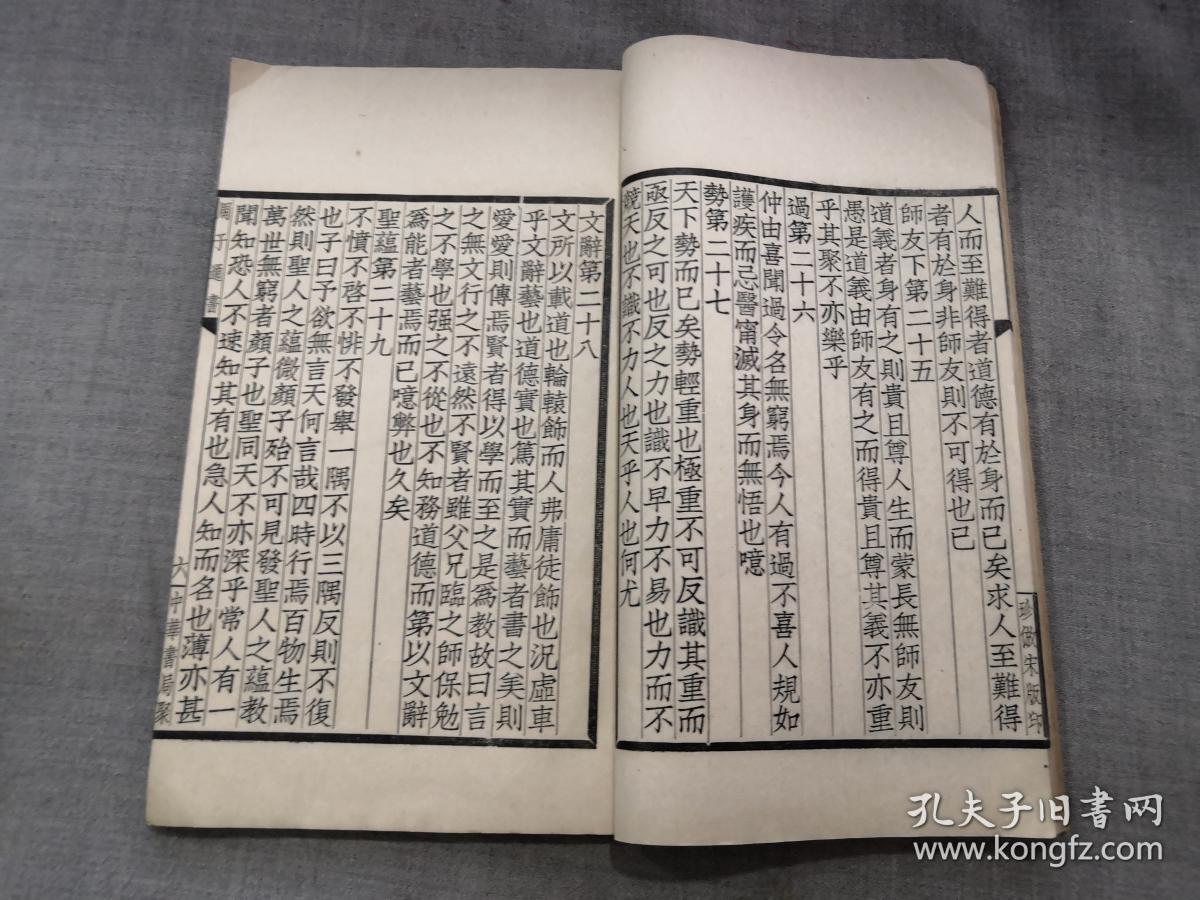 人而至難得者道德有於身而已矣求人至難得
者有於身非師友則不可得也已
師友下第二十五
道義者身有之則貴且尊人生而蒙長無師友則
愚是道義由師友有之而得貴且尊其義不亦重
乎其聚不亦樂乎
過第二十六
仲由喜聞過令名無窮焉今人有過不喜人規如
護疾而忌醫甯滅其身而無悟也噫
勢第二十七
天下勢而已矣勢輕重也極重不可反識其重而
亟反之可也反之力也識不早力不易也力而不
競天也不識不力人也天乎人也何尤
珍倣宋版印
文辭第二十八
文所以載道也輪轅飾而人弗庸徒飾也況虛車
乎文辭藝也道德實也篤其實而藝者書之矣則
愛愛則傳焉賢者得以學而至之是爲教故曰言
之無文行之不遠然不賢者雖父兄臨之師保勉
之不學也强之不從也不知務道德而第以文辭
爲能者藝焉而已噫弊也久矣
聖蘊第二十九
不憤不啓不悱不發舉一隅不以三隅反則不復
也子曰予欲無言天何言哉四時行焉百物生焉
然則聖人之蘊微顏子殆不可見發聖人之蘊教
萬世無窮者顏子也聖同天不亦深乎常人有一
聞知恐人不速知其有也急人知而名也薄亦甚
周子通書
六中華書局聚
孔夫子旧书网
www.kongfz.com